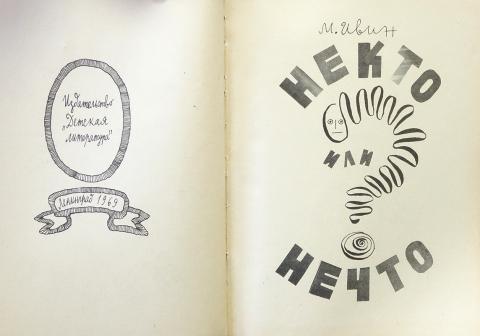 Издательство
„Детская
литература"
Ленинград 1969
М. Ивин
НЕКТО
ИЛИ
НЕЧТО